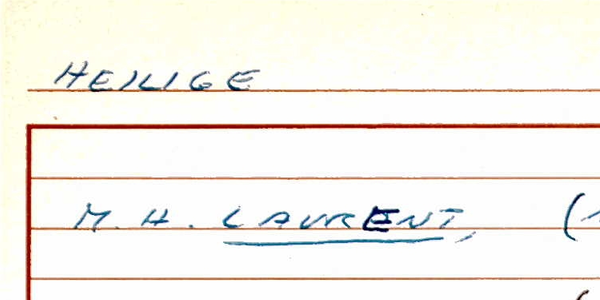 HEILIGE
M. H. LAURENT, (